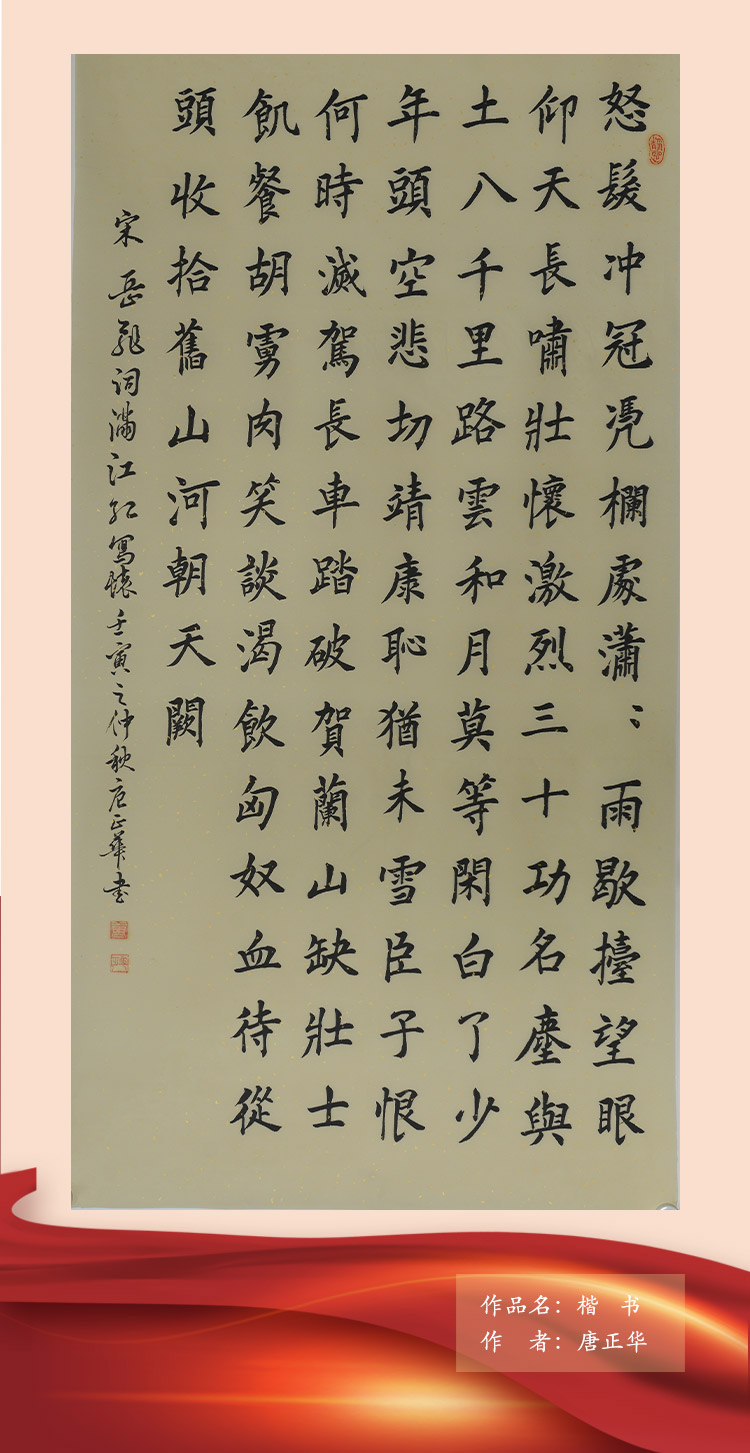 怒髮冲冠凭欄處瀟〻雨歇擡望眼
仰天長嘯壯懷激烈三十功名塵與
土八千里路雲和月莫等閑白了少
年頭空悲切靖康恥猶未雪臣子恨
何時滅駕長車踏破賀蘭山缺壯士
飢餐胡虜肉笑談渴飲匈奴血待從
頭收拾舊山河朝天闕
宋岳飛詞滿江紅寫懷壬寅之仲秋唐正華書
作品名：楷 书
作 者：唐正华